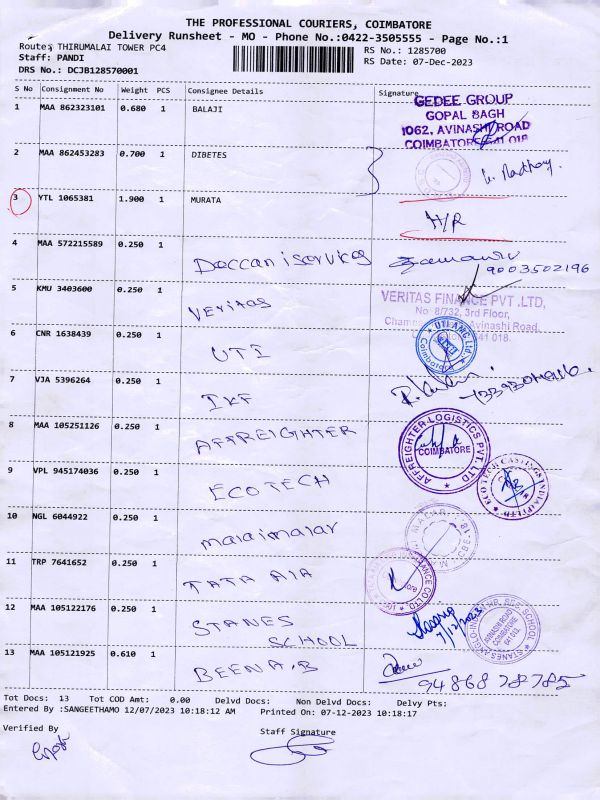 THE PROFESSIONAL COURIERS, COIMBATORE
Delivery Runsheet - MO - Phone No.:0422-3505555 - Page No.:1
Route: THIRUMALAI TOWER PC4
RS No.: 1285700
Staff: PANDI
RS Date: 07-Dec-2023
DRS No.: DCJB128570001
S No Consignment No Weight PCS Consignee Details Signature
1 MAA 862323101 0.680 1 BALAJI
GEDEE GROUP
GOPAL BAGH
1062, AVINASHI ROAD
COIMBATORE-641 018
2 MAA 862453283 0.700 1 DIBETES
3 YTL 1065381 1.900 1 MURATA
H/R
4 MAA 572215589 0.250 1 Deccan iservices
9003502196
5 KMU 3403600 0.250 1 Veritas
VERITAS FINANCE PVT .LTD,
No: 8/732, 3rd Floor,
Avinashi Road,
641 018.
6 CNR 1638439 0.250 1 UTI
UTI AMC Ltd.
Coimbatore
7 VJA 5396264 0.250 1 IKF
8 MAA 105251126 0.250 1 AFFREIGHTER
AFFREIGHTER LOGISTICS PVT. LTD
COIMBATORE
9 VPL 945174036 0.250 1 ECOTECH
ECOTECH CASTINGS INDIA (P) LTD
10 NGL 6044922 0.250 1 malaimalar
11 TRP 7641652 0.250 1 TATA AIA
12 MAA 105122176 0.250 1 STANES
SCHOOL
7/12/2023
AVINASHI ROAD
COIMBATORE
641 018.
13 MAA 105121925 0.610 1 BEENA.B
94868 78785
Tot Docs: 13 Tot COD Amt: 0.00 Delvd Docs: Non Delvd Docs: Delvy Pts:
Entered By :SANGEETHAMO 12/07/2023 10:18:12 AM Printed On: 07-12-2023 10:18:17
Verified By Staff Signature